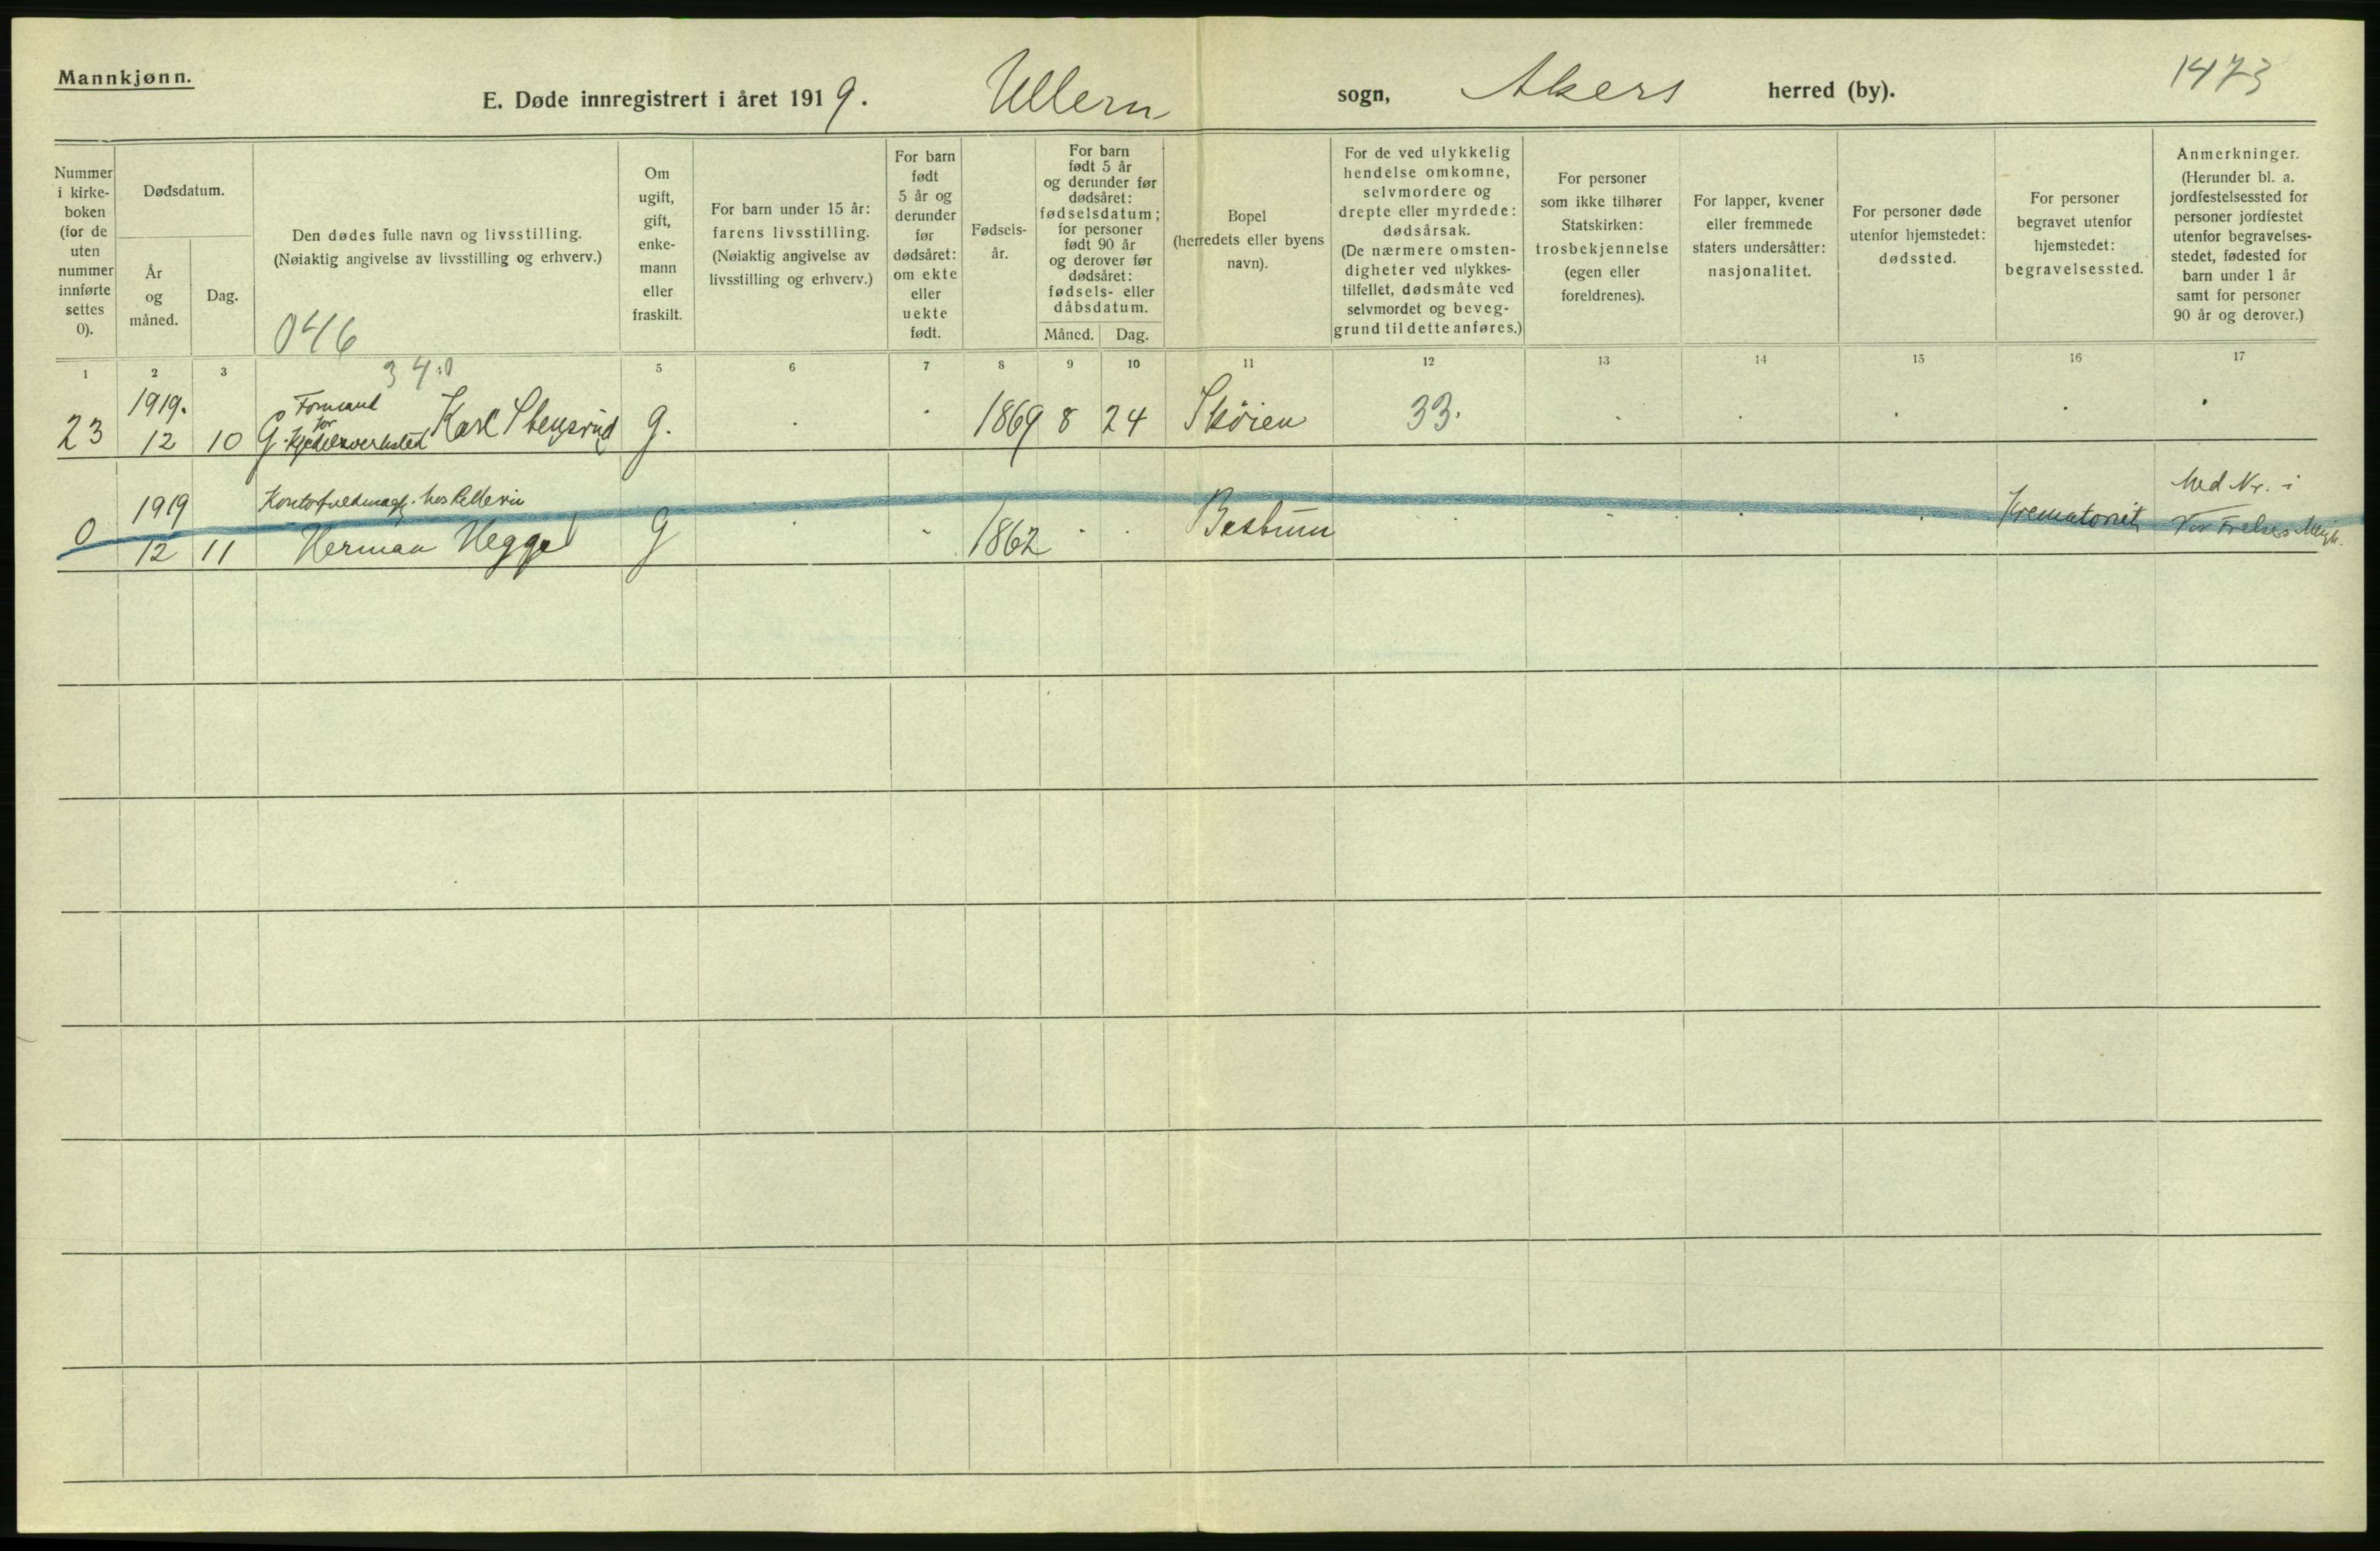 Mannkjønn.
E. Døde innregistrert i året 1919. Ullern sogn, Akers herred (by).
1473
Nummer
i kirke-
boken
(for de
uten
nummer
innførte
settes
0).
Dødsdatum.
År
og
måned.
Dag.
Den dødes fulle navn og livsstilling.
(Nøiaktig angivelse av livsstilling og erhverv.)
046
Om
ugift,
gift,
enke-
mann
eller
fraskilt.
For barn under 15 år:
farens livsstilling.
(Nøiaktig angivelse av
livsstilling og erhverv.)
For barn
født
5 år og
derunder
før
dødsåret:
om ekte
eller
uekte
født.
Fødsels-
år.
For barn
født 5 år
og derunder før
dødsåret:
fødselsdatum;
for personer
født 90 år
og derover før
dødsåret:
fødsels- eller
dåbsdatum.
Måned. Dag.
Bopel
(herredets eller byens
navn).
For de ved ulykkelig
hendelse omkomne,
selvmordere og
drepte eller myrdede:
dødsårsak.
(De nærmere omsten-
digheter ved ulykkes-
tilfellet, dødsmåte ved
selvmordet og beveg-
grund til dette anføres.)
For personer
som ikke tilhører
Statskirken:
trosbekjennelse
(egen eller
foreldrenes).
For lapper, kvener
eller fremmede
staters undersåtter:
nasjonalitet.
For personer døde
utenfor hjemstedet:
dødssted.
For personer
begravet utenfor
hjemstedet:
begravelsessted.
Anmerkninger.
(Herunder bl. a.
jordfestelsessted for
personer jordfestet
utenfor begravelses-
stedet, fødested for
barn under 1 år
samt for personer
90 år og derover.)
1 2 3 5 6 7 8 9 10 11 12 13 14 15 16 17
34.0
1919.
Formand
for
23 12 10 G. Kjedelverksted Karl Stensrud g. 1869 8 24 Skøien 33.
1919 Kontorfuldmægt. hos Med Nr. i
0 12 11 Herman Hegge G 1862 Bestum Krematoriet Vor Frelsers Mengh.